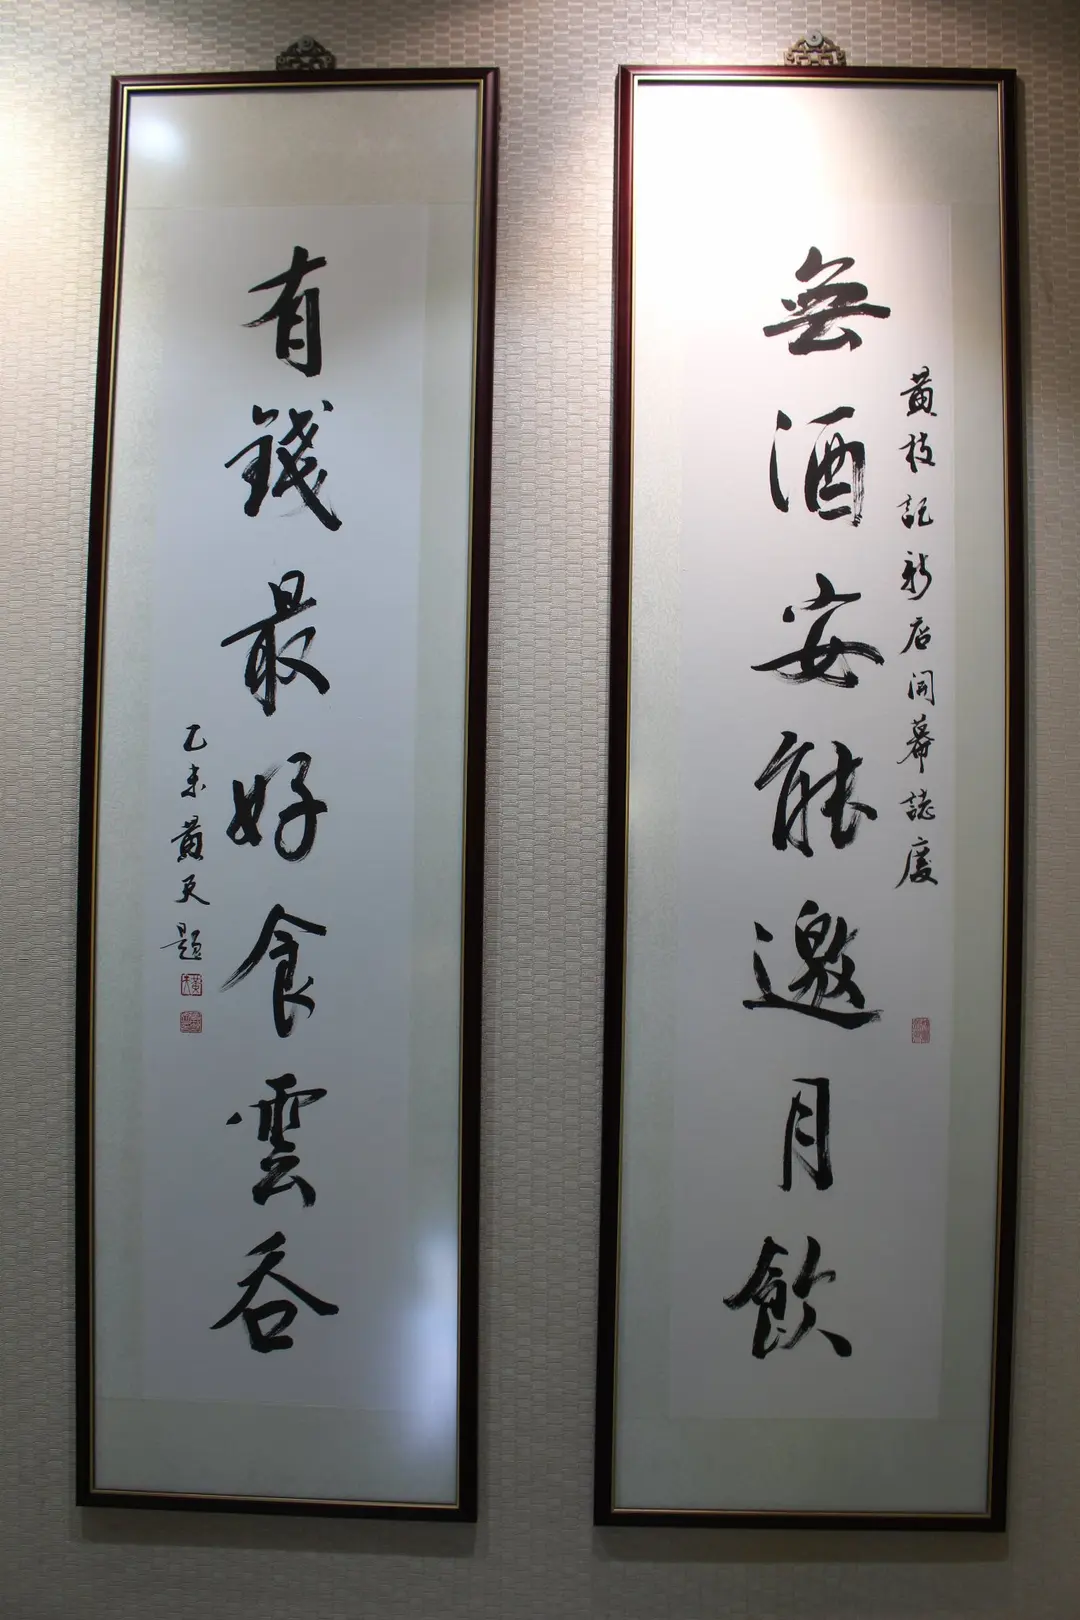 黃枝記新店開幕誌慶
無酒安能邀月飲
有錢最好食雲吞
乙未黃題